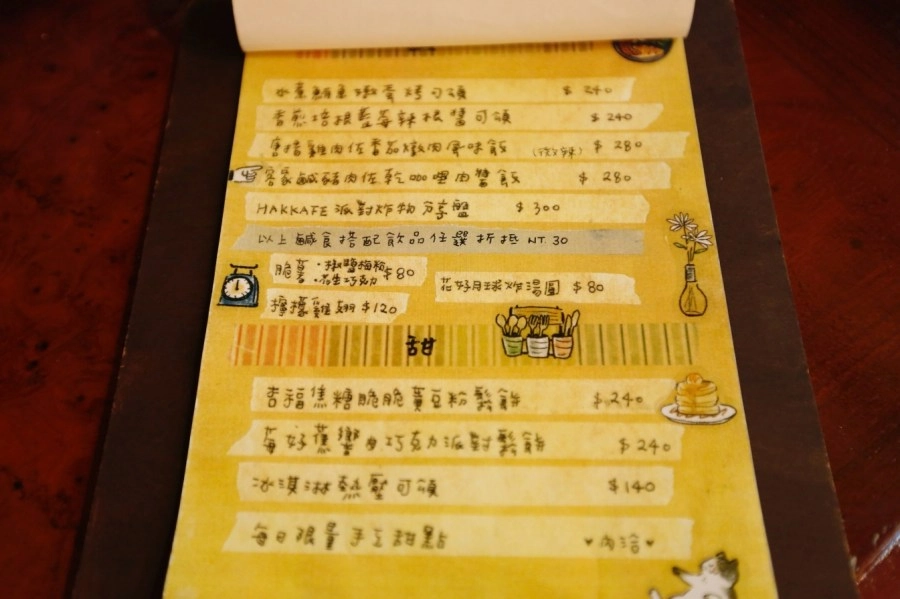 水煮鮪魚嫩蛋烤可頌 $240
香煎培根藍莓辣根醬可頌 $240
唐揚雞肉佐番茄燉肉風味飯 (微辣) $280
客家鹹豬肉佐乾咖哩肉醬飯 $280
HAKKAFE 派對炸物分享盤 $300
以上鹹食搭配飲品任選折抵 NT.30
脆薯 ・椒鹽梅粉 $80
・花生巧克力
花好月球炸湯圓 $80
檸檬雞翅 $120
甜
幸福焦糖脆脆黃豆粉鬆餅 $240
莓好蕉響曲巧克力派對鬆餅 $240
冰淇淋熱壓可頌 $140
每日限量手工甜點 ♥內洽♥